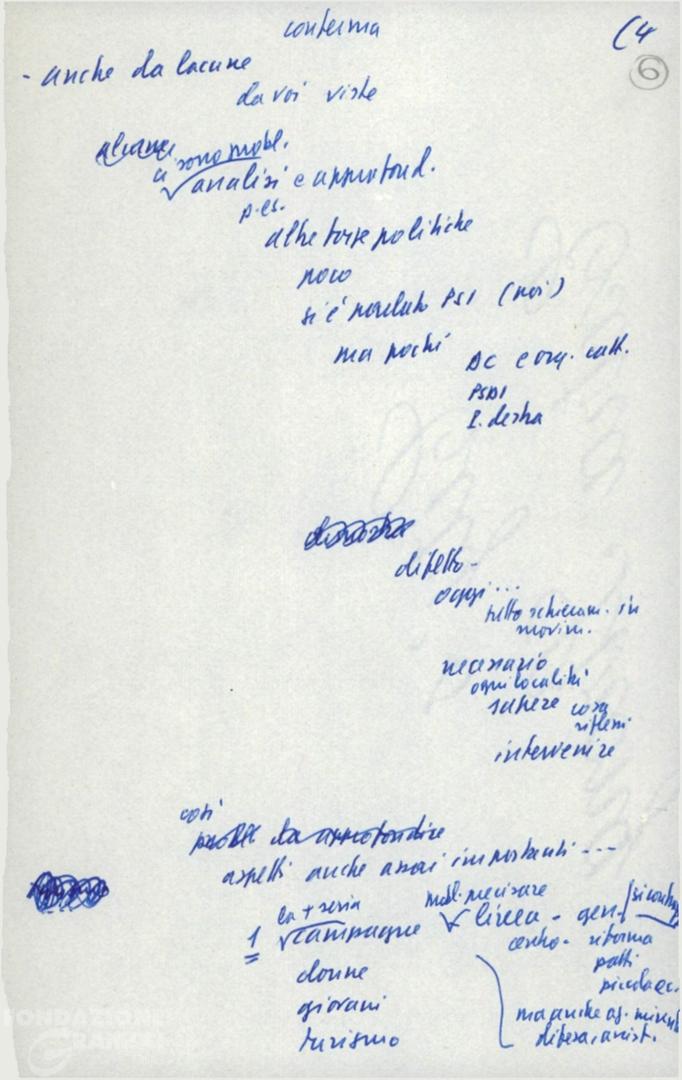 conferma
(4
6
- anche da lacune
da voi viste
analisi e approfond.
p. es.
altre forze politiche
poco
si è parlato PSI (noi)
ma pochi
DC e org. catt.
PSDI
E. destra
difetto -
oggi ...
tutto schieram. in
movim.
necessario
ogni località
sapere cosa
riflessi
intervenire
così
probl. da approfondire
aspetti anche assai importanti ...
la + seria
1 campagne
donne
giovani
turismo
precisare
linea - gen.
centro - riforma
patti
piccola
ma anche
difesa, assist.
FONDAZIONE
GRAMSCI